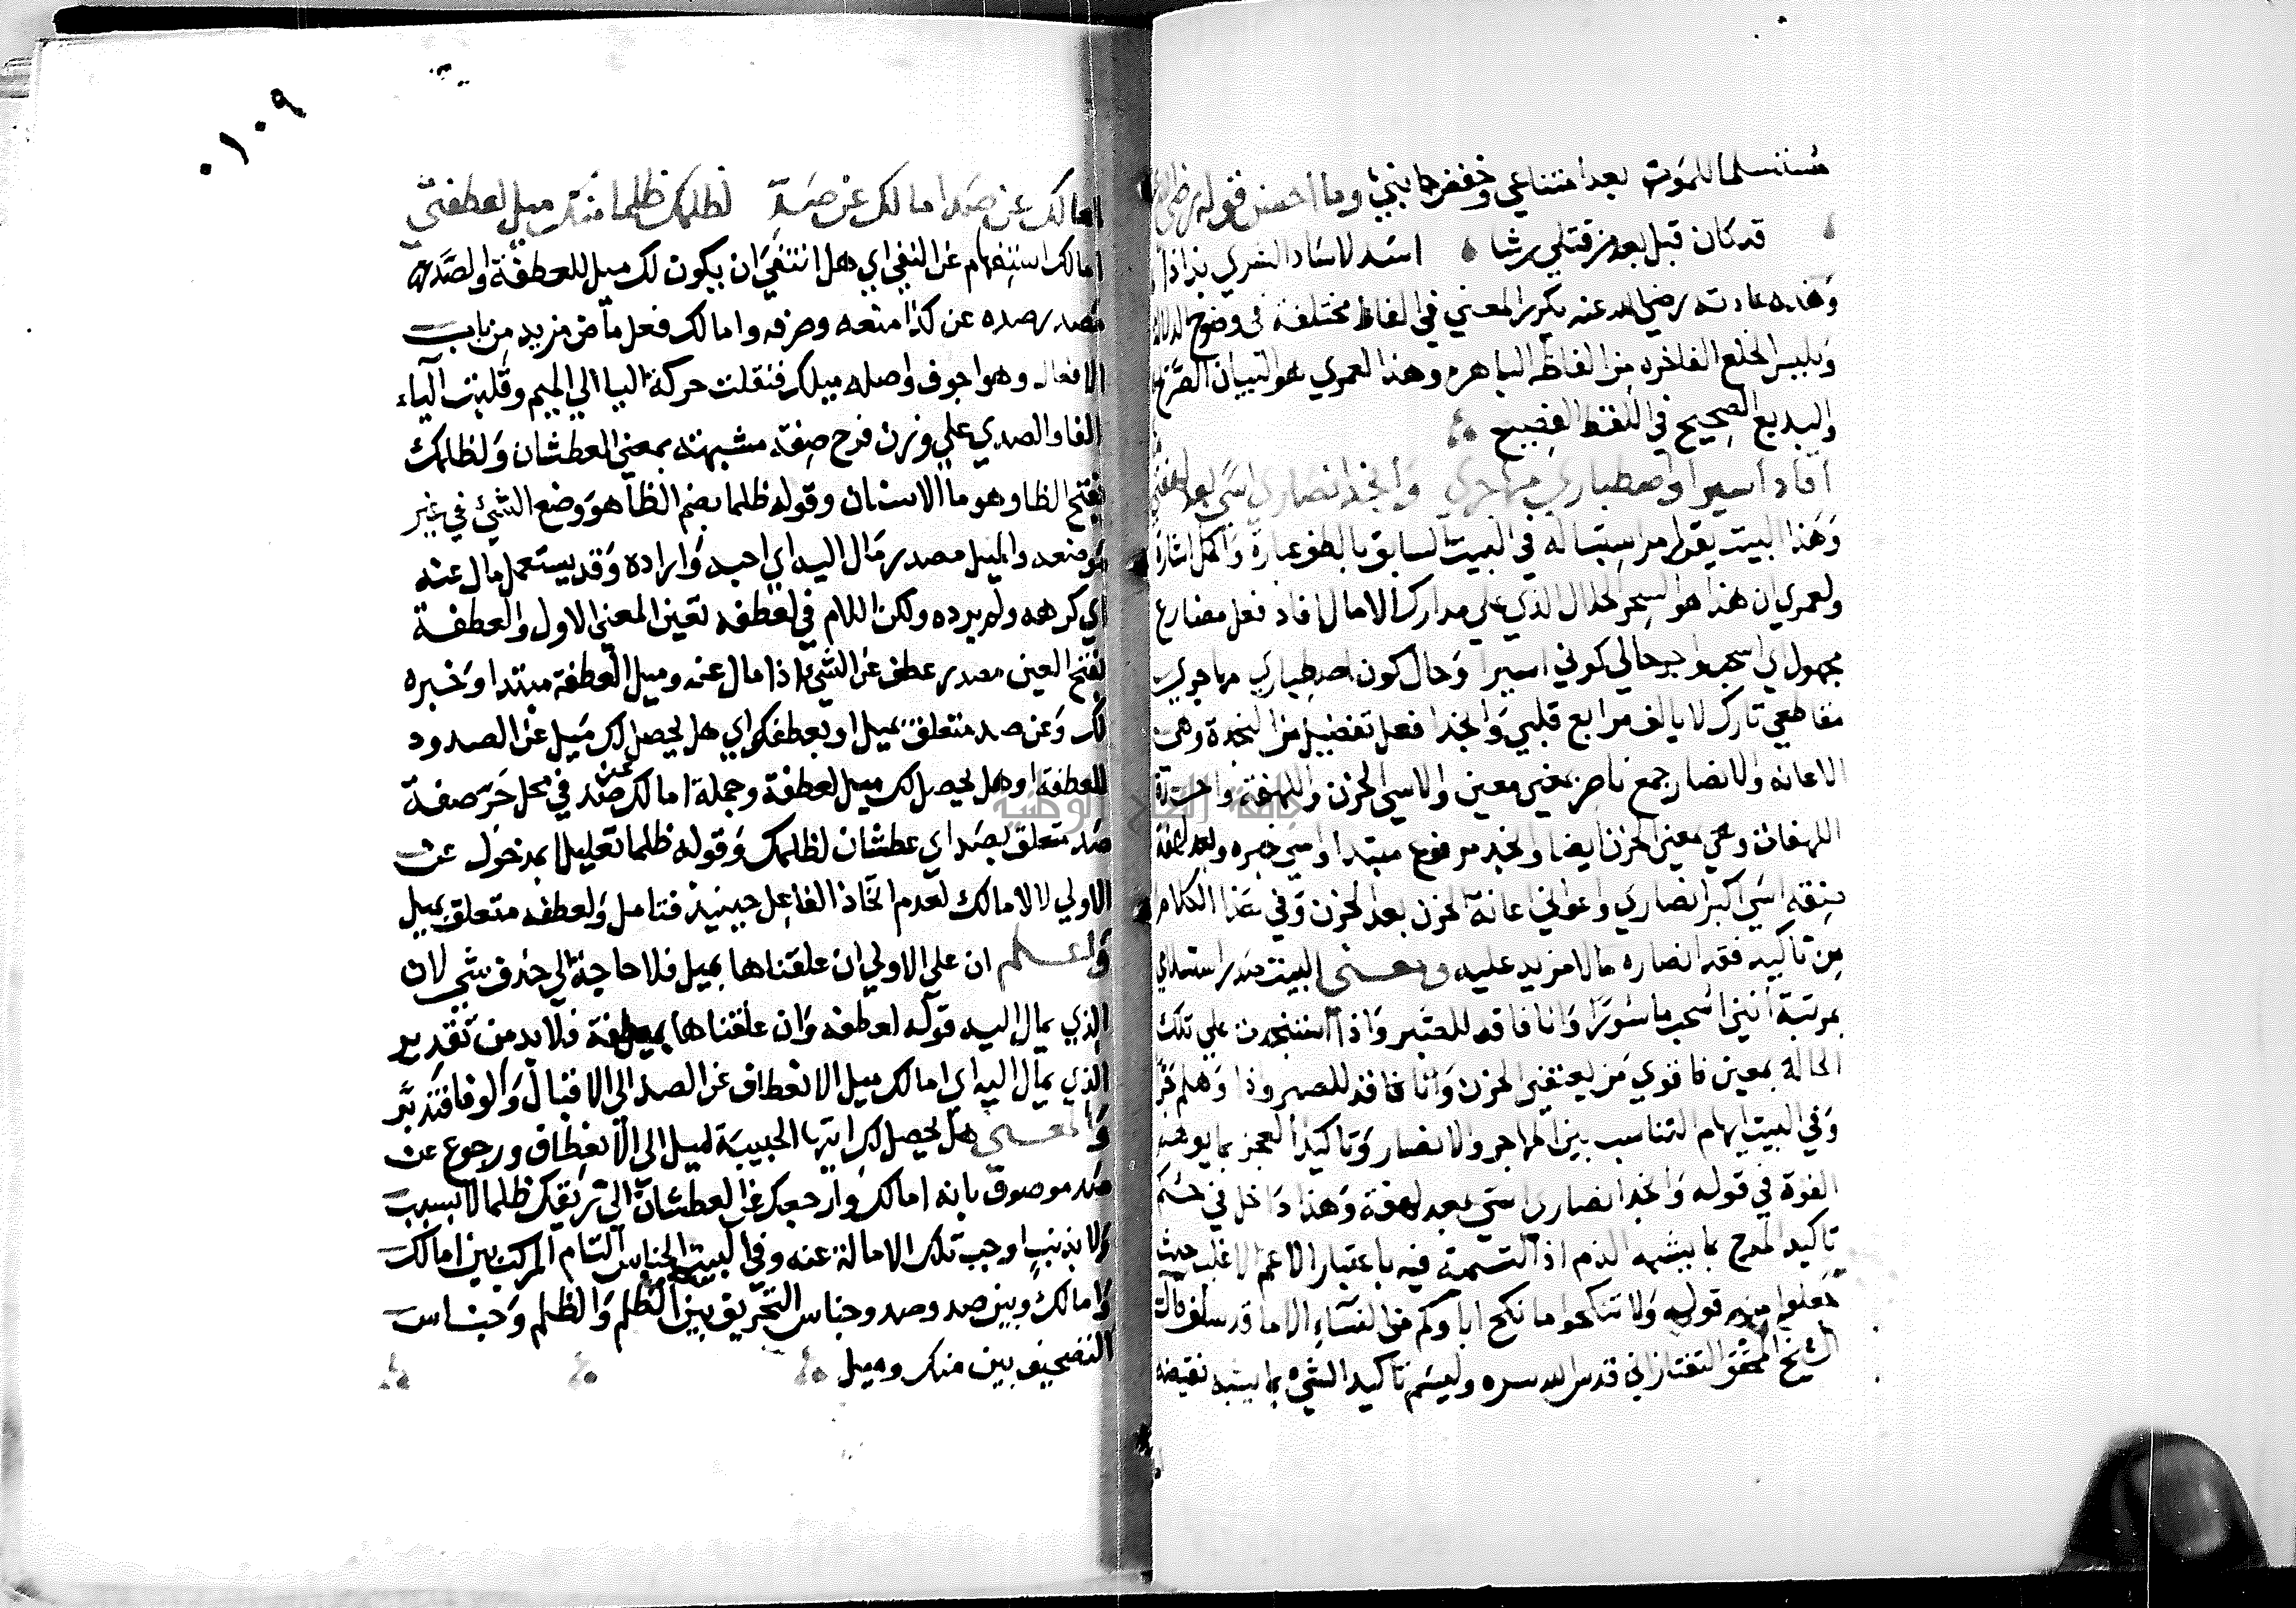 مستسلما للموت بعد امتناعي وخفض جانبي وما احسن قوله رضي
قد كان قبل يعد من قتلي رشا اسد لاساد الشري بذاذا
وهذه عادته رضي الله عنه يكرر المعني في الفاظ مختلفة في وضوح الدلالة
ويلبس الخلع الفاخره من الفاظه الباهره وهذا لعمري هو التبيان الصريح
والبديع الصحيح في اللفظ الفصيح
اقاد اسيرا واصطباري مهاجري وانجد انصاري اسي بعد لهفتي
وهذا البيت يقرر استبساله في البيت السابق بالطف عبارة واكمل اشارة
ولعمري ان هذا هو السحر الحلال الذي علي مدارك الامال اقاد فعل مضارع
مجهول اي اسحب واجر حالي كوني اسيرا وحال كون اصطباري مهاجري
مقاطعي تارك لا يالف مرابع قلبي وانجد افعل تفضيل من النجدة وهي
الاعانه والانصار جمع ناصر بمعني معين والاسي الحزن واللهفة واحدة
اللهفات وهي بمعني الحزن ايضا وانجد مرفوع مبتدا واسي خبره وبعد لهفة
صفة اسي اكبر انصاري واعواني اعانة الحزن بعد الحزن وفي هذا الكلام
من تاكيد فقد انصاره ما لا مزيد عليه ومعني البيت صدر استسلامي
بمرتبة انني اسحب ماسورا وانا فاقد للصبر واذا استنجدت علي تلك
الحالة بمعين فاقوي من يعينني الحزن وانا فاقد للصبر وذا وهلم جرا
وفي البيت ايهام التناسب بين المهاجر والانصار وتاكيد العجز بما يوهم
القوة في قوله وانجد انصاري اسي بعد لهفة وهذا داخل في قسم
تاكيد المدح بما يشبه الذم اذ التسمية فيه باعتبار الاعم الاغلب حيث
جعلوا منه قوله ولا تنكحوا ما نكح اباوكم من النساء الا ما قد سلف قال
الشيخ المحقق التفتازاني قدس الله سره وليسم تاكيد الشي بما يشبه نقيضه
٠١٠٩
امالك عن صد امالك عن صد لظلمك ظلما منك ميل لعطفتي
امالك استفهام عن النفي اي هل انتفي ان يكون لك ميل للعطفة والصد
مصدر صده عن كذا منعه وصرفه وامالك فعل ماض مزيد من باب
الافعال وهو اجوف واصله ميلك فنقلت حركة اليا الي الميم وقلبت الياء
الفا والصدي علي وزن فرح صفة مشبهة بمعني العطشان ولظلمك
بفتح الظا وهو ما الاسنان وقوله ظلما بضم الظا هو وضع الشي في غير
موضعه والميل مصدر مال اليه اي احبه واراده وقد يستعمل مال عنه
اي كرهه ولم يرده ولكن اللام في لعطفه تعين المعني الاول والعطفة
بفتح العين مصدر عطف عن الشي اذا مال عنه وميل العطفة مبتدا وخبره
لك وعن صد متعلق بميل او بعطفك اي هل يحصل لك ميل عن الصدود
للعطفة او هل يحصل لك ميل لعطفة وجملة امالك عن صد في محل جر صفة
صد متعلق بصد اي عطشان لظلمك وقوله ظلما تعليل لمدخول عن
الاولي لا لامالك لعدم اتحاذ الفاعل حينيذ فتامل ولعطفه متعلق بميل
واعلم ان علي الاولي ان علقناها بميل فلا حاجة الي حذف شي لان
الذي يمال اليه قوله لعطفه وان علقناها بعطفة فلا بد من تقدير
الذي يمال اليه اي امالك ميل الانعطاف عن الصد الي الاقبال والوفا فتدبر
والمعني هل يحصل لك ايتها الحبيبة لميل الي الانعطاف ورجوع عن
صد موصوف بانه امالك وارجعك عن العطشان الي تريقك ظلما لا بسبب
ولا بذنب اوجب تلك الامالة عنه وفي البيت الجناس التام المركب بين امالك
وامالك وبين صد وصد وجناس التحريف بين الظلم والظلم وجناس
التصحيف بين منك وميل